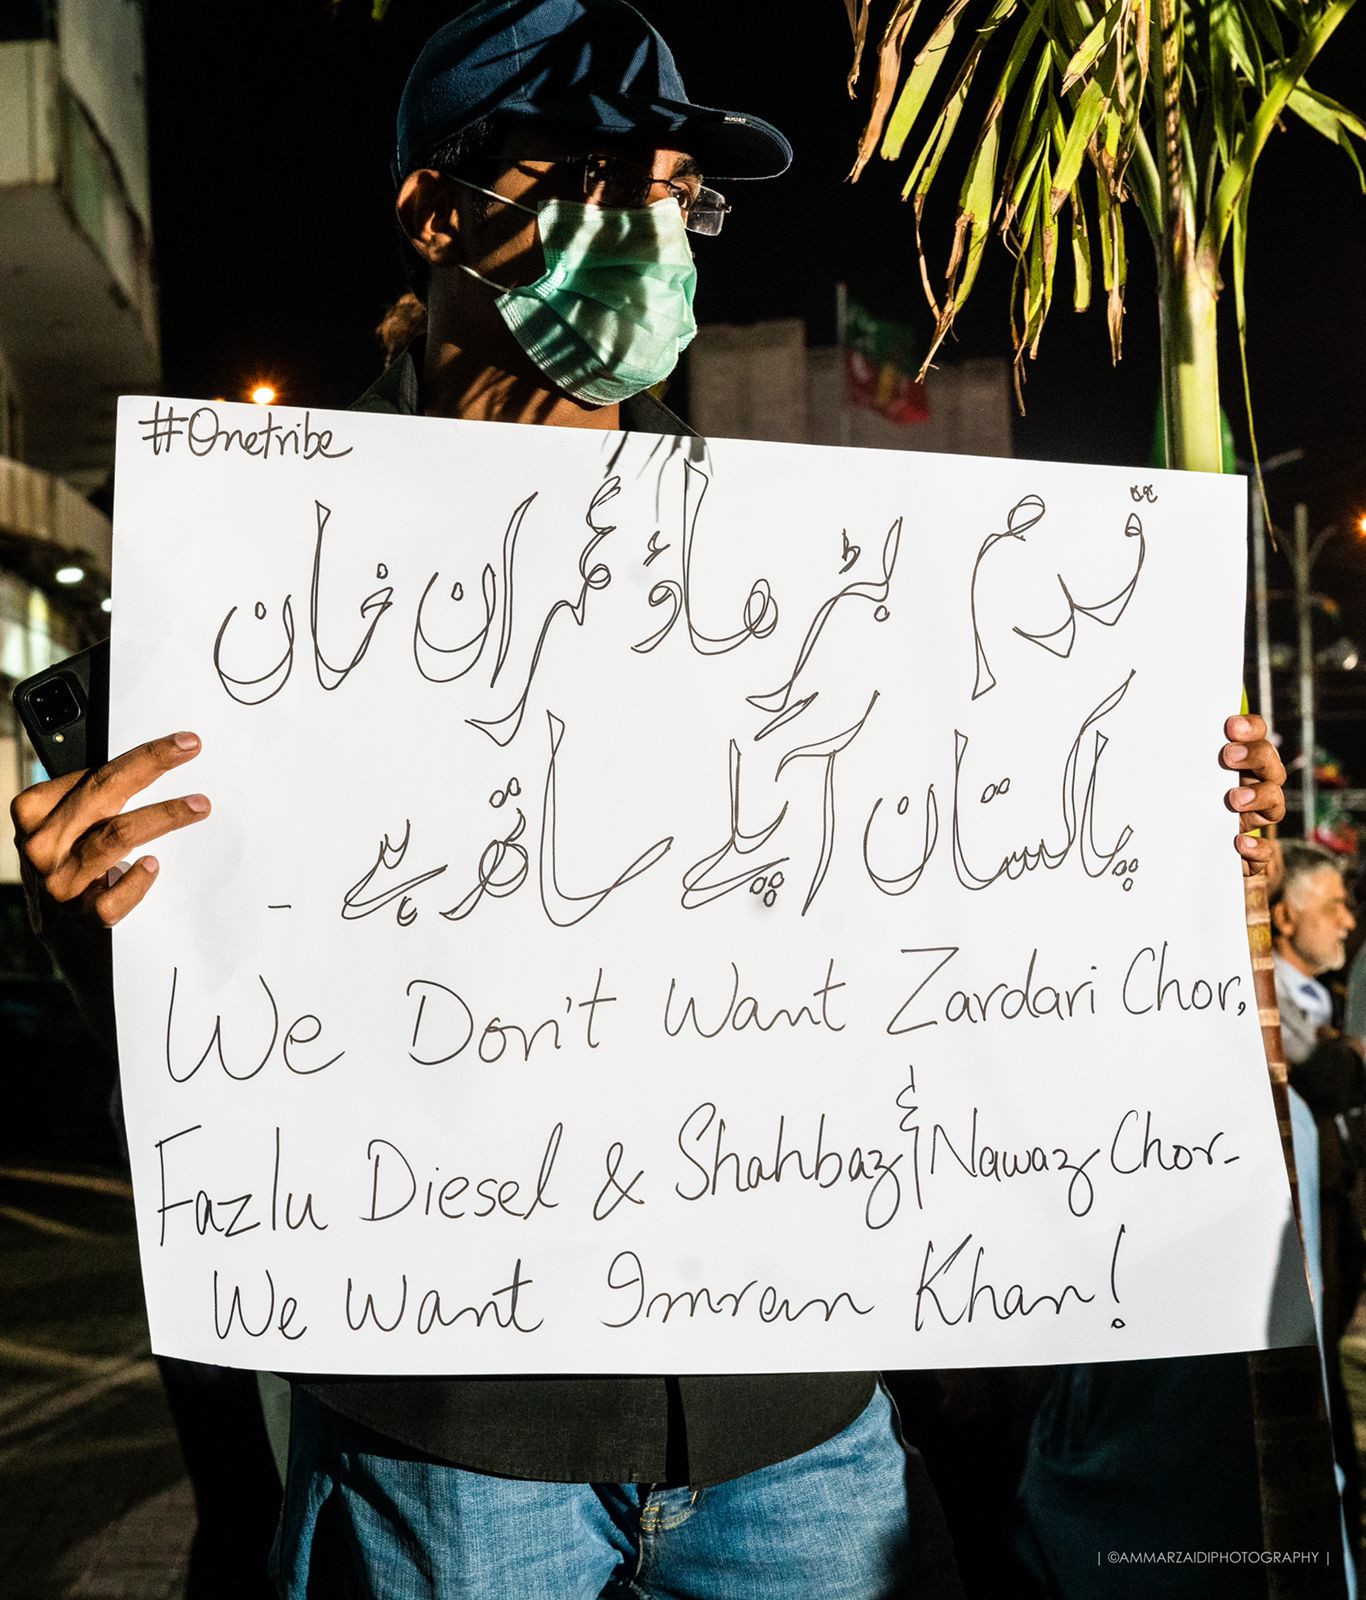 #Onetribe
قدم بڑھاؤ عمران خان
پاکستان آپکے ساتھ ہے ۔
We Don't Want Zardari Chor,
Fazlu Diesel & Shahbaz & Nawaz Chor-
We Want Imran Khan!
| ©AMMARZAIDIPHOTOGRAPHY |